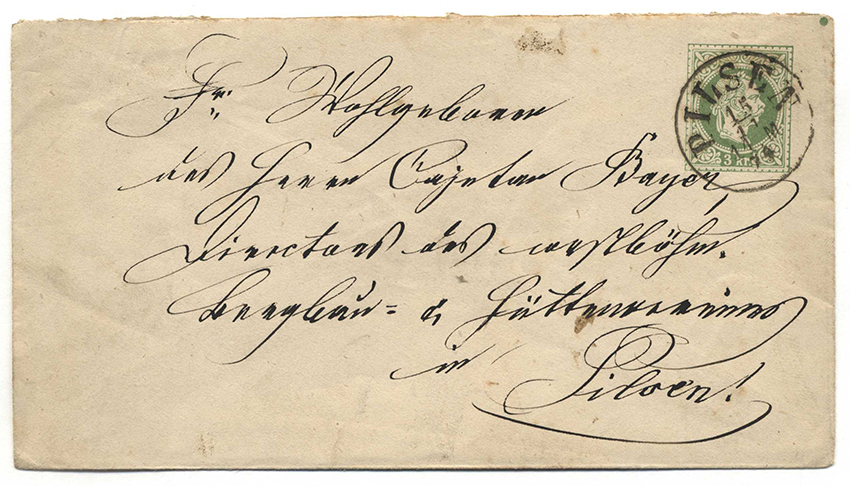 Sr. Wohlgeboren
des Herrn Cajetan Bayer,
Directors des westböhm.
Bergbau- & Hüttenvereines
in
Pilsen!
PILSEN
15
11
74
3 KR